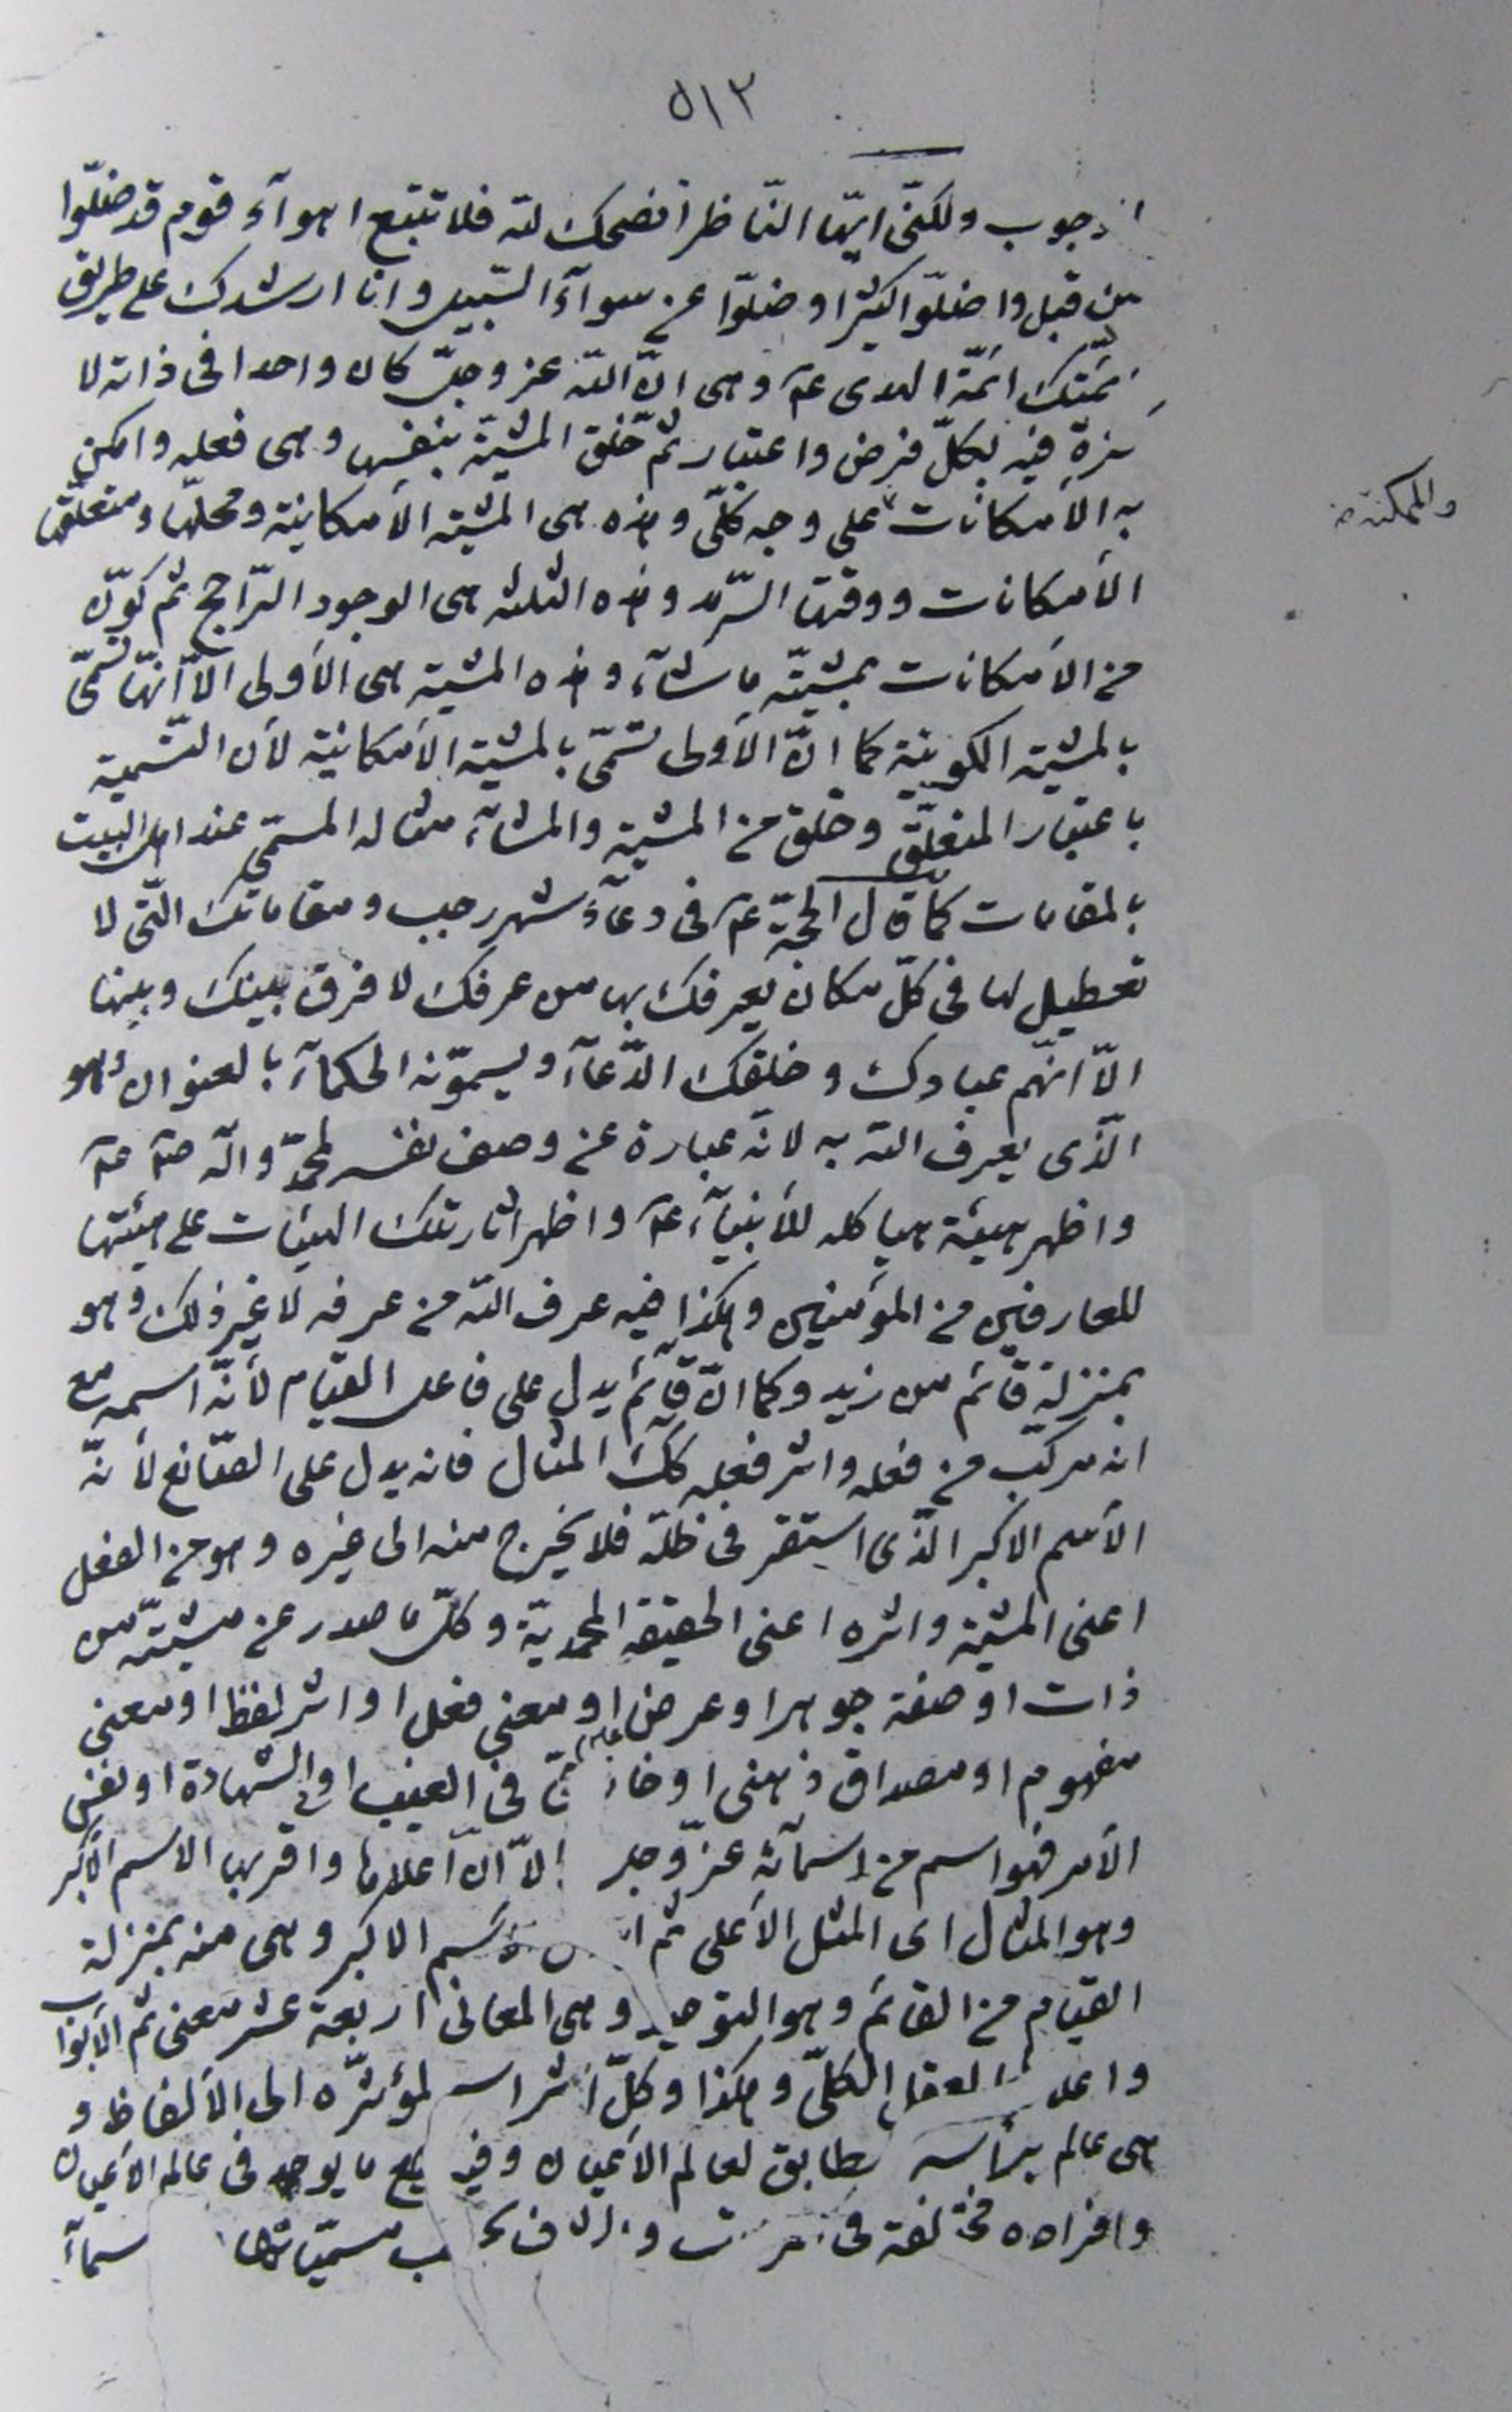 ٥١٢
ولكنّى ايّها النّاظر انصحك للّه فلا تتبع اهوآء قوم قد ضلّوا
من قبل واضلّوا كثيرا وضلّوا عن سوآء السّبيل وانا ارشدك على طريق
ائمّتك ائمّة الهدى عم وهى انّ اللّه عزّ وجلّ كان واحدا فى ذاته لا
كثرة فيه بكلّ فرض واعتبار ثمّ خلق المشيّة بنفسها وهى فعله وامكن
به الأمكانات على وجه كلّى وهذه هى المشيّة الأمكانيّة ومحلّها ومتعلّقها
والممكنة
الأمكانات ووقتها السّرمد وهذه الثلثة هى الوجود الرّاجح ثم كوّن
من الأمكانات بمشيّته ما شآء وهذه المشيّة هى الأولى الّا انّها تسمّى
بالمشيّة الكونيّة كما انّ الأولى تسمّى بالمشيّة الأمكانيّة لأن التّسمية
باعتبار المتعلّق وخلق من المشيّة والمشآء مثاله المسمّى عند اهل البيت
بالمقامات كما قال الحجّة عم فى دعآء شهر رجب ومقاماتك الّتى لا
تعطيل لها فى كلّ مكان يعرفك بها من عرفك لا فرق بينك وبينها
الّا انّهم عبادك وخلقك الدّعآء ويسمّونه الحكمآء بالعنوان وهو
الّذى يعرف اللّه به لانه عبارة عن وصف نفسه لمحمّد وآله صم عم
واظهر هيئة هياكله للأنبيآء عم واظهر اثار تلك الهيئات على هيئتها
للعارفين من المؤمنين وهكذا فيه عرف اللّه من عرفه لا غير ذلك وهو
بمنزلة قائم من زيد وكما انّ قآئم يدل على فاعل القيام لأنّه اسمه مع
انه مركّب من فعله واثر فعله كك المثال فانه يدل على الصّانع لأنّه
الأسم الاكبر الّذى استقر فى ظلّه فلا يخرج منه الى غيره وهو من الفعل
اعنى المشيّة واثره اعنى الحقيقة المحمديّة وكلّ ما صدر عن مشيّته من
ذات او صفة جوهرا وعرض او معنى فعل او اثر لفظ او معنى
مفهوم او مصداق ذهنى او فى الغيب او فى الشهادة او نفس
الأمر فهو اسم من اسمآئه عزّ وجل الّا انّ اعلاها واقربها الاسم الأكبر
وهو المثال اى المثل الأعلى ثم الاكبر وهى منه بمنزلة
القيام من القائم وهو التوحيد وهى المعانى اربعة عشر معنى ثم الأبواب
واعلاها العقل الكلّى وهكذا وكلّ اثر اسم لمؤثّره الى الألفاظ و
هى عالم برأسه يطابق لعالم الأعيان وفيه جميع ما يوجد فى عالم الأعيان
وافراده مختلفة فى مسمّياتها